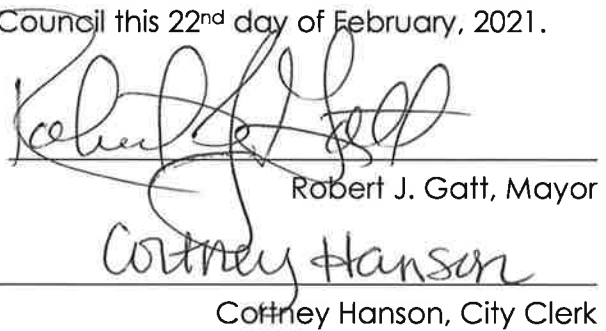 Council this 22nd day of February, 2021.
Robert J. Gatt
Robert J. Gatt, Mayor
Cortney Hanson
Cortney Hanson, City Clerk